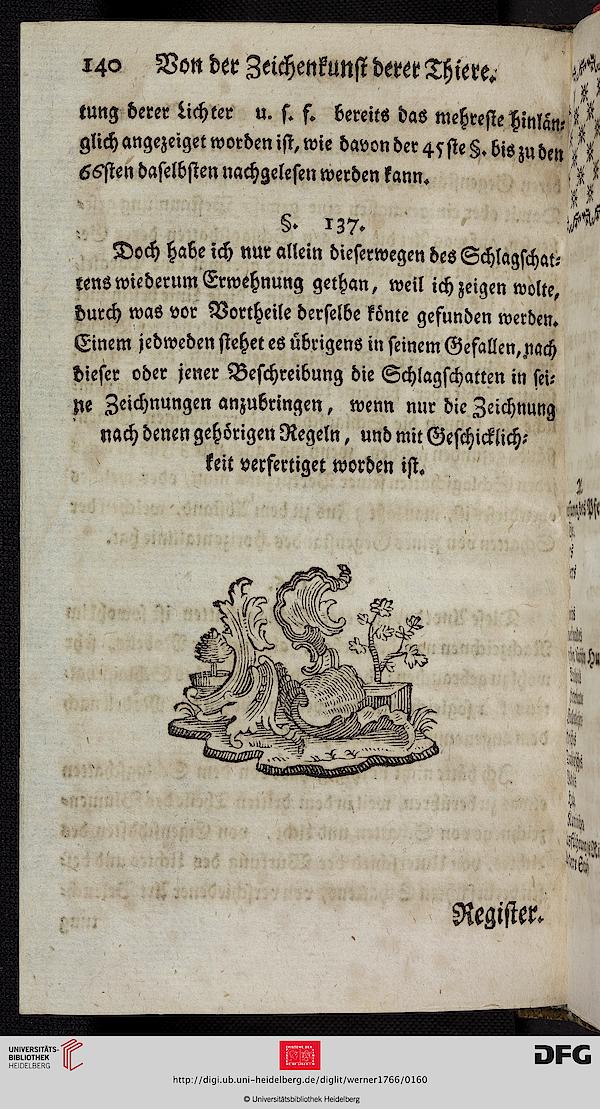 140 Von der Zeichenkunst derer Thiere.
tung derer Lichter u. s. f. bereits das mehreste hinlän-
glich angezeiget worden ist, wie davon der 45ste §. bis zu den
66sten daselbsten nachgelesen werden kann.
§. 137.
Doch habe ich nur allein dieserwegen des Schlagschat-
tens wiederum Erwehnung gethan, weil ich zeigen wolte,
durch was vor Vortheile derselbe könte gefunden werden.
Einem jedweden stehet es übrigens in seinem Gefallen, nach
dieser oder jener Beschreibung die Schlagschatten in sei-
ne Zeichnungen anzubringen, wenn nur die Zeichnung
nach denen gehörigen Regeln, und mit Geschicklich-
keit verfertiget worden ist.
Register.
UNIVERSITÄTS-
BIBLIOTHEK
HEIDELBERG
DFG
http://digi.ub.uni-heidelberg.de/diglit/werner1766/0160
© Universitätsbibliothek Heidelberg